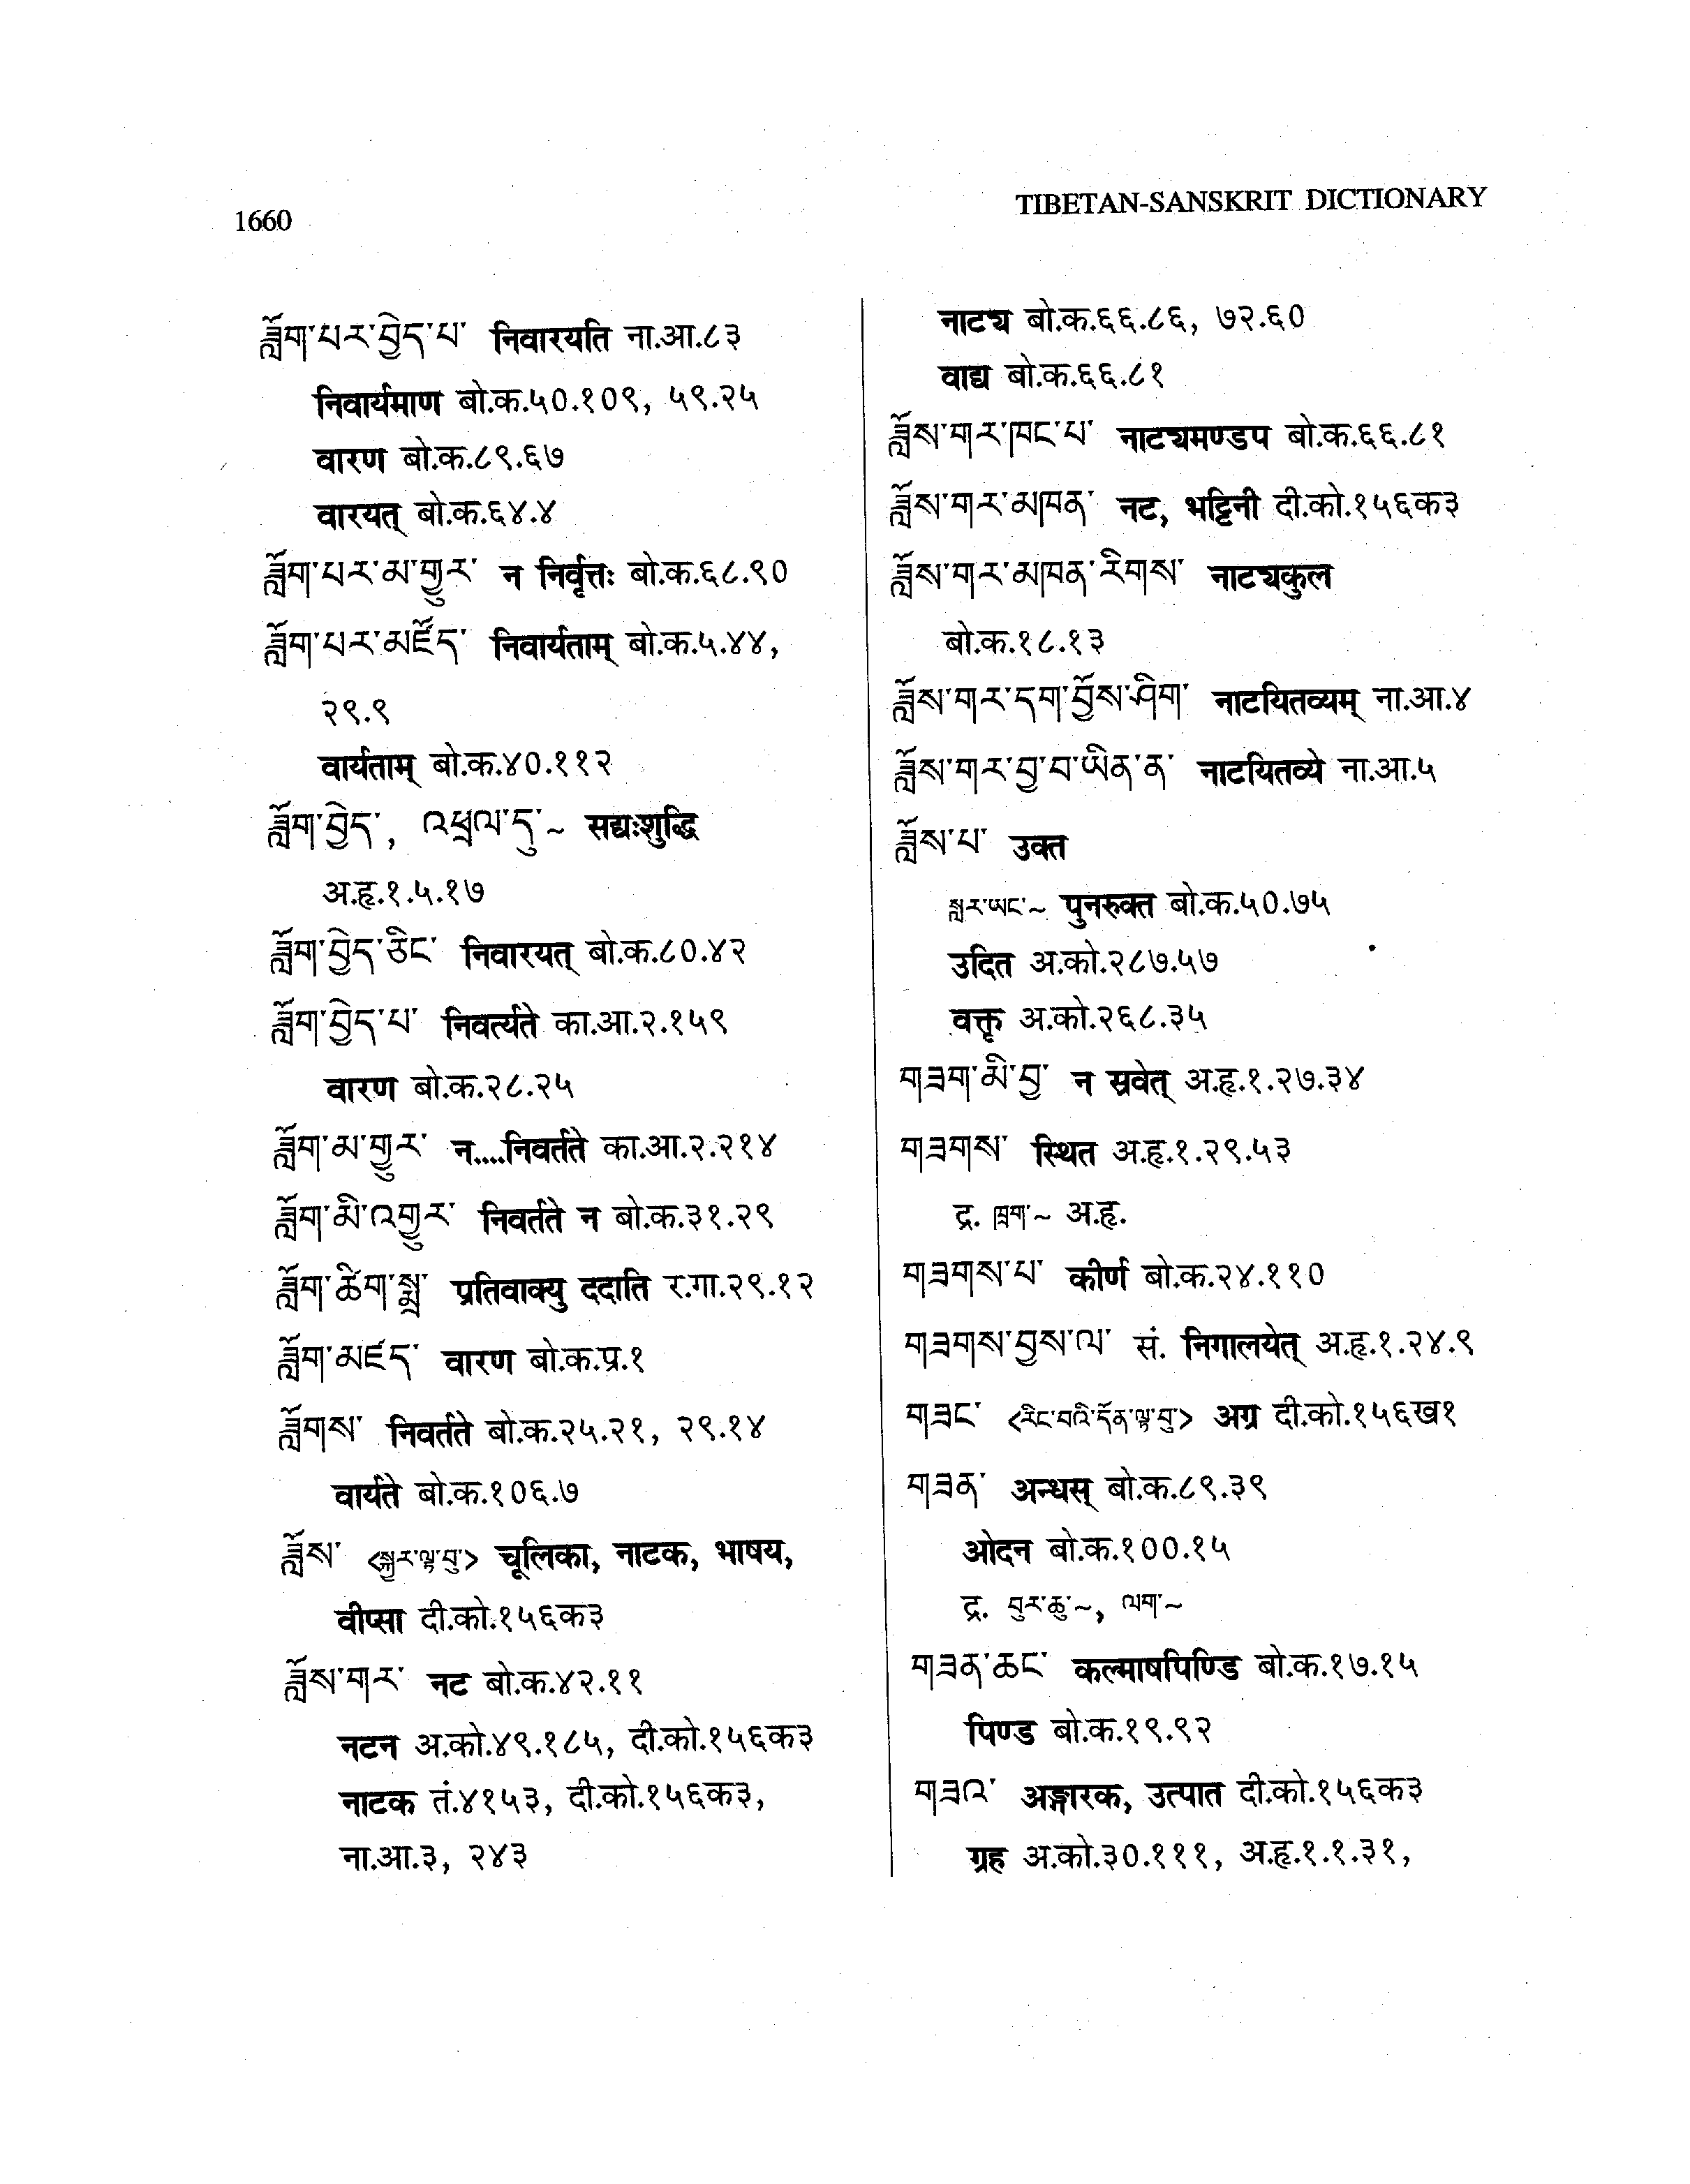 1660
TIBETAN-SANSKRIT DICTIONARY
ཟློག་པར་བྱེད་པ་ निवारयति ना.आ.८३
निवार्यमाण बो.क.५०.१०९, ५९.२५
वारण बो.क.८९.६७
वारयत् बो.क.६४.४
ཟློག་པར་མ་གྱུར་ न निर्वृत्तः बो.क.६८.९०
ཟློག་པར་མཛོད་ निवार्यताम् बो.क.५.४४,
२९.९
वार्यताम् बो.क.४०.११२
ཟློག་བྱེད་, འཕྲལ་དུ་~ सद्यःशुद्धि
अ.हृ.१.५.१७
ཟློག་བྱེད་ཅིང་ निवारयत् बो.क.८०.४२
ཟློག་བྱེད་པ་ निवर्त्यते का.आ.२.१५९
वारण बो.क.२८.२५
ཟློག་མ་གྱུར་ न....निवर्तते का.आ.२.२१४
ཟློག་མི་འགྱུར་ निवर्तते न बो.क.३१.२९
ཟློག་ཚིག་སྨྲ་ प्रतिवाक्यु ददाति र.गा.२९.१२
ཟློག་མཛད་ वारण बो.क.प्र.१
ཟློགས་ निवर्तते बो.क.२५.२१, २९.१४
वार्यते बो.क.१०६.७
ཟློས་ <སྐྱར་ལྟ་བུ> चूलिका, नाटक, भाषय,
वीप्सा दी.को.१५६क३
ཟློས་གར་ नट बो.क.४२.११
नटन अ.को.४९.१८५, दी.को.१५६क३
नाटक तं.४१५३, दी.को.१५६क३,
ना.आ.३, २४३
नाट्य बो.क.६६.८६, ७२.६०
वाद्य बो.क.६६.८१
ཟློས་གར་ཁང་པ་ नाट्यमण्डप बो.क.६६.८१
ཟློས་གར་མཁན་ नट, भट्टिनी दी.को.१५६क३
ཟློས་གར་མཁན་རིགས་ नाट्यकुल
बो.क.१८.१३
ཟློས་གར་དག་བྱོས་ཤིག་ नाटयितव्यम् ना.आ.४
ཟློས་གར་བྱ་བ་ཡིན་ན་ नाटयितव्ये ना.आ.५
ཟློས་པ་ उक्त
སླར་ཡང་~ पुनरुक्त बो.क.५०.७५
उदित अ.को.२८७.५७
वक्तृ अ.को.२६८.३५
གཟག་མི་བྱ་ न स्रवेत् अ.हृ.१.२७.३४
གཟགས་ स्थित अ.हृ.१.२९.५३
द्र. ཁྲག་~ अ.हृ.
གཟགས་པ་ कीर्ण बो.क.२४.११०
གཟགས་བྱས་ལ་ सं. निगालयेत् अ.हृ.१.२४.९
གཟང་ <རིང་བའི་དོན་ལྟ་བུ> अग्र दी.को.१५६ख१
གཟན་ अन्धस् बो.क.८९.३९
ओदन बो.क.१००.१५
द्र. བུར་ཆུ་~, ལག་~
གཟན་ཆང་ कल्माषपिण्डि बो.क.१७.१५
पिण्ड बो.क.१९.९२
གཟའ་ अङ्गारक, उत्पात दी.को.१५६क३
ग्रह अ.को.३०.१११, अ.हृ.१.१.३१,